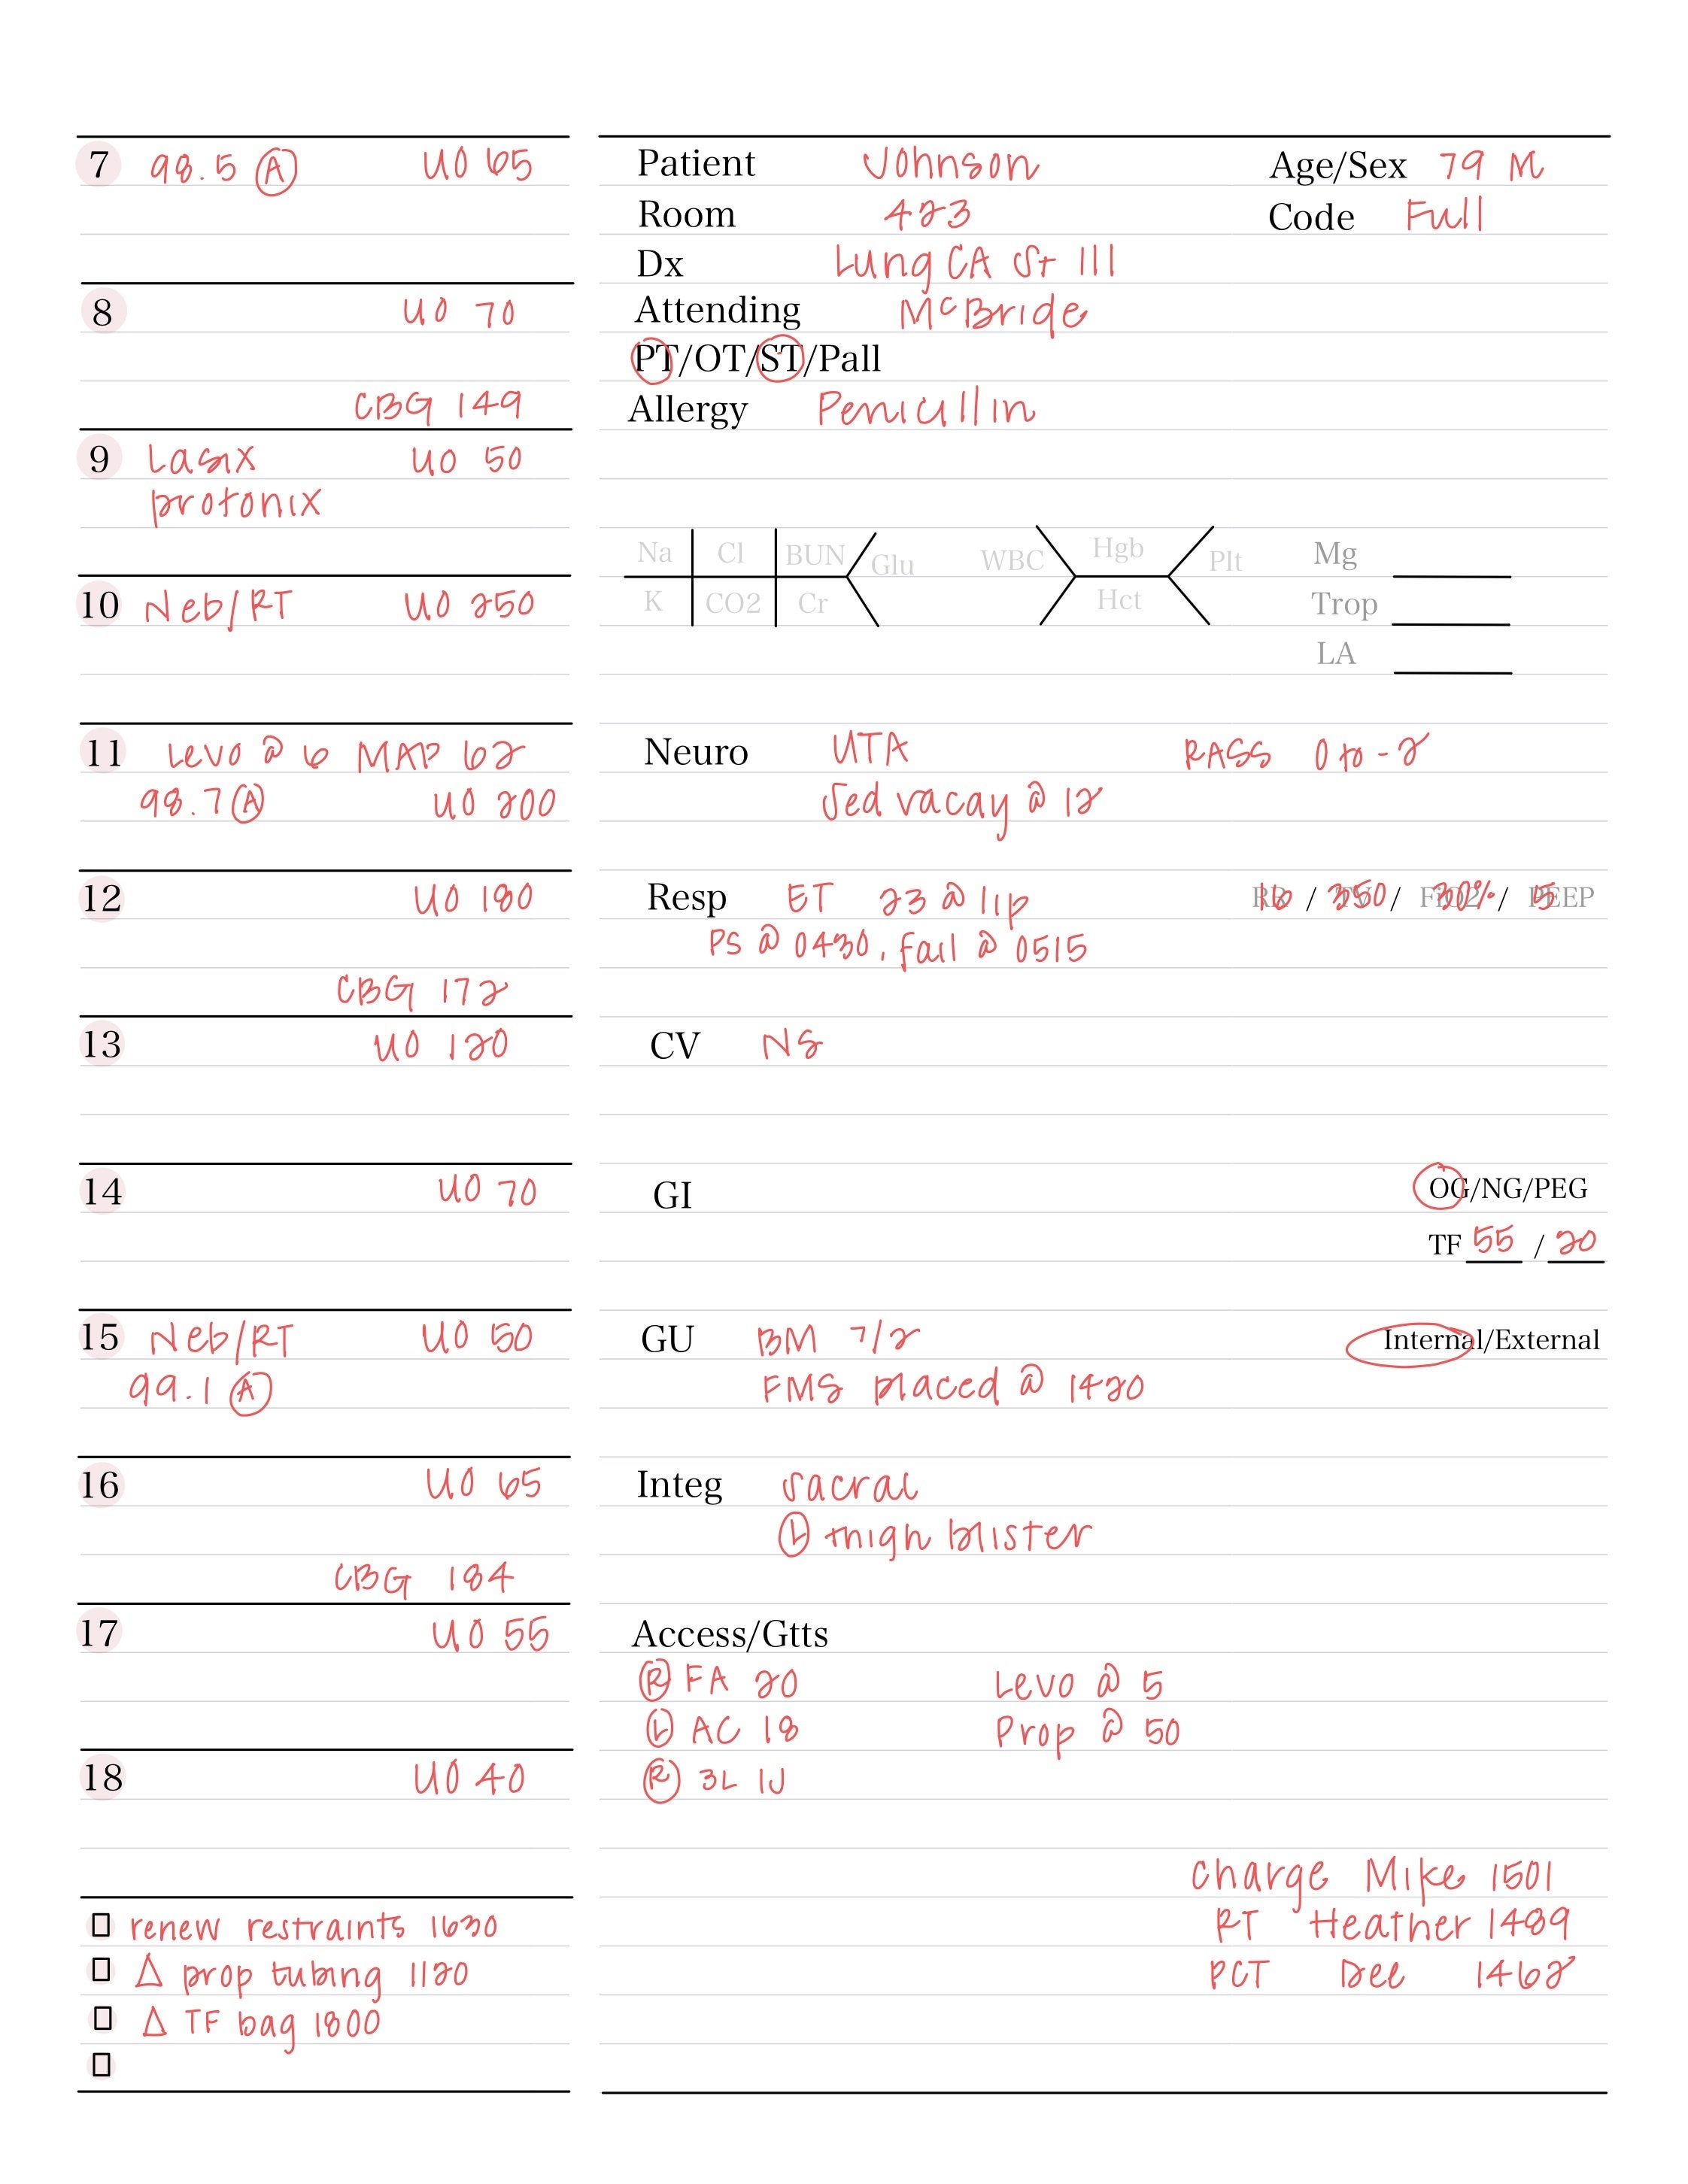 7 98.5 Ⓐ UO 65
8 UO 70
CBG 149
9 Lasix UO 50
protonix
10 Neb/RT UO 250
11 Levo @ 6 MAP 62
98.7 Ⓐ UO 200
12 UO 180
CBG 172
13 UO 120
14 UO 70
15 Neb/RT UO 50
99.1 Ⓐ
16 UO 65
CBG 184
17 UO 55
18 UO 40
☐ renew restraints 1630
☐ Δ prop tubing 1120
☐ Δ TF bag 1800
☐
Patient Johnson Age/Sex 79 M
Room 423 Code Full
Dx Lung CA St III
Attending McBride
PT/OT/ST/Pall
Allergy Penicillin
Na Cl BUN Glu WBC Hgb Plt Mg
K CO2 Cr Hct Trop
LA
Neuro UTA RASS 0 to -2
Sed vacay @ 12
Resp ET 23 @ lip RR 16 / TV 350 / FiO2 30% / PEEP 5
PS @ 0430, fail @ 0515
CV NS
GI OG/NG/PEG
TF 55 / 20
GU BM 7/2 Internal/External
FMS placed @ 1420
Integ sacral
Ⓛ thigh blister
Access/Gtts
Ⓡ FA 20 Levo @ 5
Ⓛ AC 18 Prop @ 50
Ⓡ 3L IJ
Charge Mike 1501
RT Heather 1489
PCT Dee 1462